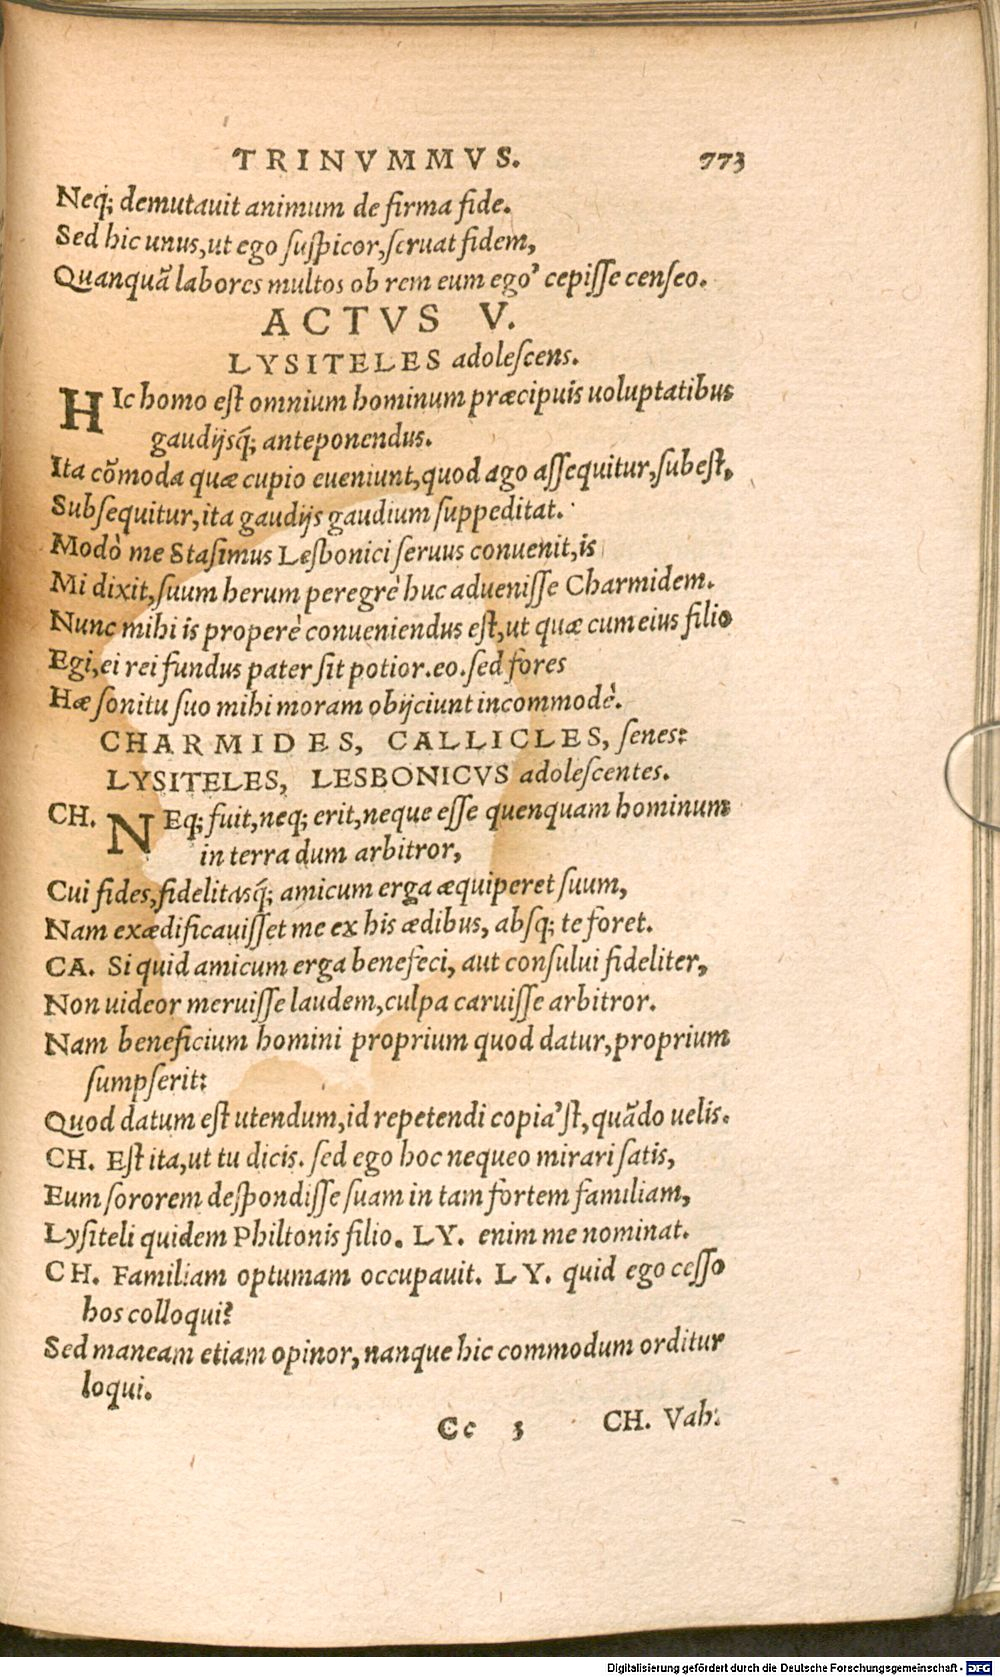 TRINVMMVS. 773
Neq; demutauit animum de firma fide.
Sed hic unus, ut ego suspicor, seruat fidem,
Quanquã labores multos ob rem eum ego' cepisse censeo.
ACTVS V.
LYSITELES adolescens.
HIc homo est omnium hominum præcipuis uoluptatibus
gaudijsq́; anteponendus.
Ita cõmoda quæ cupio eueniunt, quod ago assequitur, subest,
Subsequitur, ita gaudijs gaudium suppeditat.
Modò me Stasimus Lesbonici seruus conuenit, is
Mi dixit, suum herum peregrè huc aduenisse Charmidem.
Nunc mihi is properè conueniendus est, ut quæ cum eius filio
Egi, ei rei fundus pater sit potior. eo. sed fores
Hæ sonitu suo mihi moram obijciunt incommodè.
CHARMIDES, CALLICLES, senes:
LYSITELES, LESBONICVS adolescentes.
CH. NEq; fuit, neq; erit, neque esse quenquam hominum
in terra dum arbitror,
Cui fides, fidelitasq́; amicum erga æquiperet suum,
Nam exædificauisset me ex his ædibus, absq; te foret.
CA. Si quid amicum erga benefeci, aut consului fideliter,
Non uideor meruisse laudem, culpa caruisse arbitror.
Nam beneficium homini proprium quod datur, proprium
sumpserit:
Quod datum est utendum, id repetendi copia'st, quãdo uelis.
CH. Est ita, ut tu dicis. sed ego hoc nequeo mirari satis,
Eum sororem despondisse suam in tam fortem familiam,
Lysiteli quidem Philtonis filio. LY. enim me nominat.
CH. Familiam optumam occupauit. LY. quid ego cesso
hos colloqui?
Sed maneam etiam opinor, nanque hic commodum orditur
loqui.
Cc 3 CH. Vah:
Digitalisierung gefördert durch die Deutsche Forschungsgemeinschaft - DFG